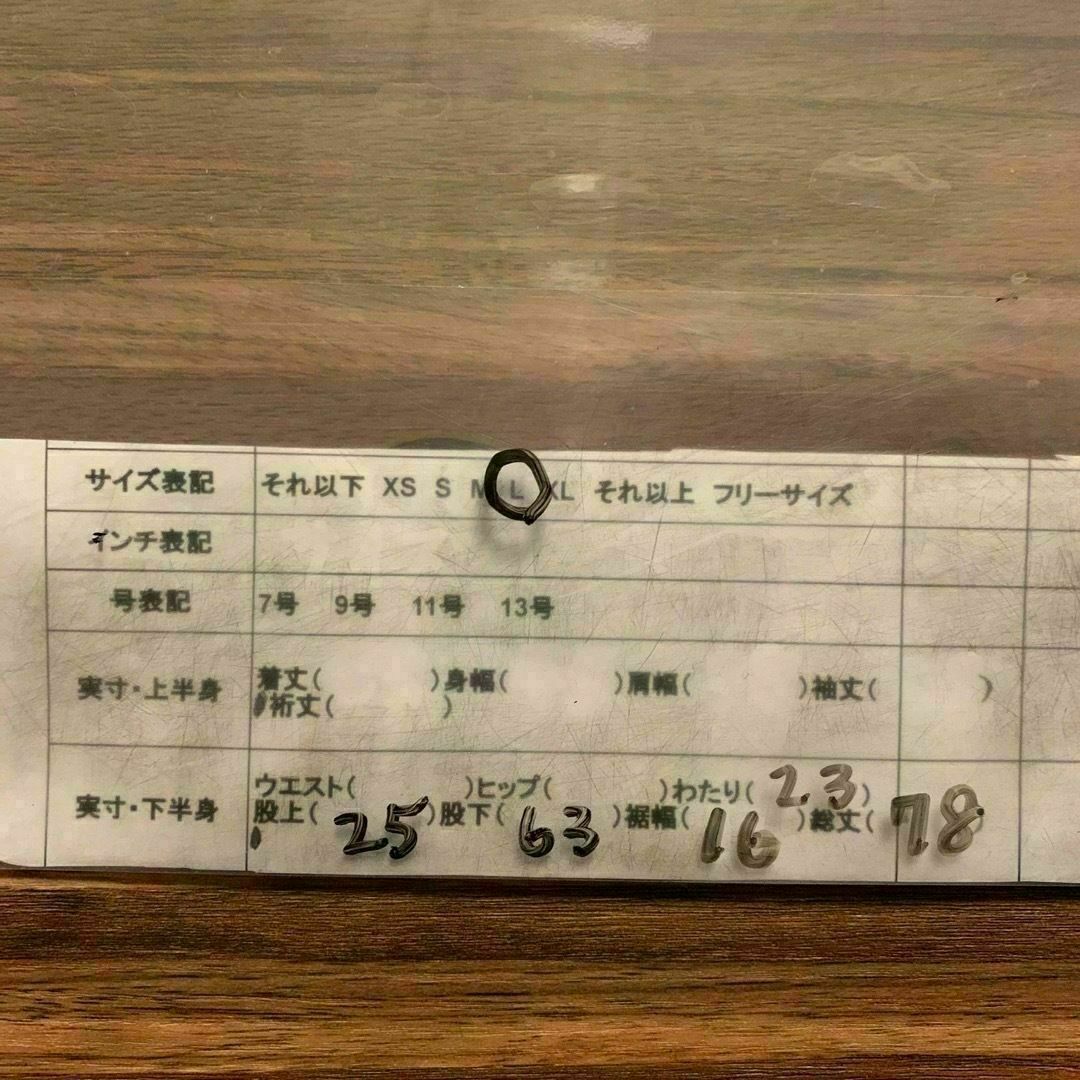 サイズ表記 それ以下 XS S M L XL それ以上 フリーサイズ
インチ表記
号表記 7号 9号 11号 13号
実寸・上半身 着丈( )身幅( )肩幅( )袖丈( )
裄丈( )
実寸・下半身 ウエスト( )ヒップ( )わたり( 23 )
股上( 25 )股下( 63 )裾幅( 16 )総丈( 78